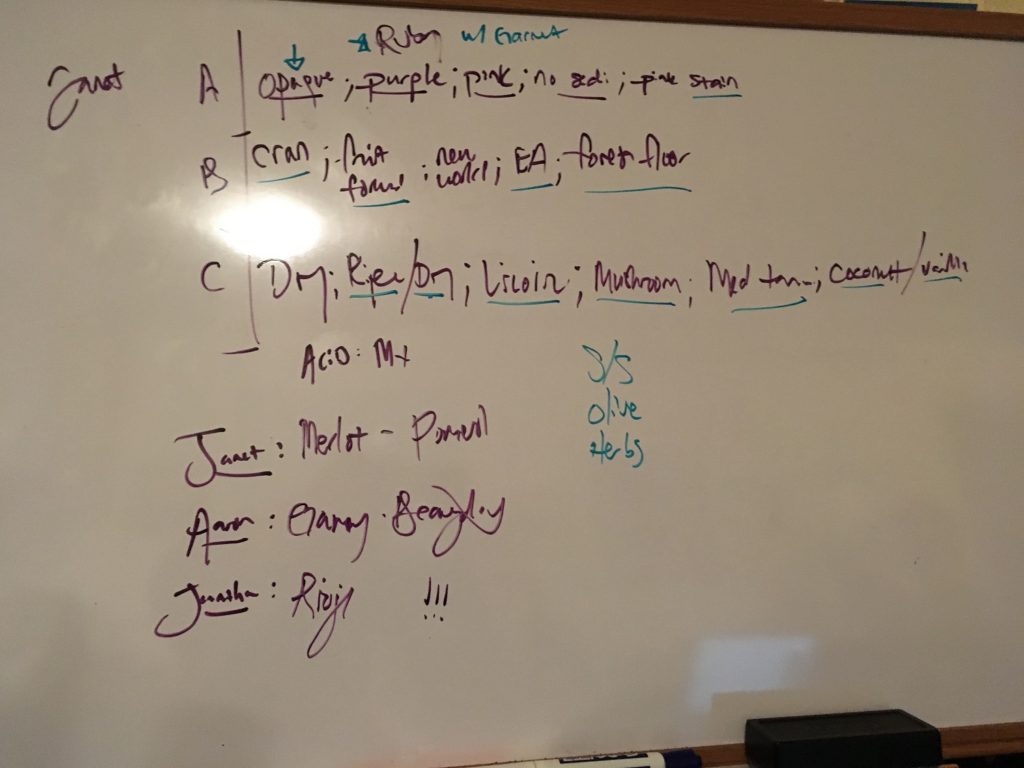 Ruby w/ Garnet
Janet A opaque ; purple ; pink ; no sedi ; pink stain
B cran ; fruit forward ; new world ; EA ; forest floor
C Dry ; Ripe/Dry ; Licoir ; Mushroom ; Med tan ; Coconut/Vanilla
Acid : M+
S/S
Olive
Herbs
Janet : Merlot - Pomerol
Aaron : Gamay . Beaujolay
: Rioja !!!